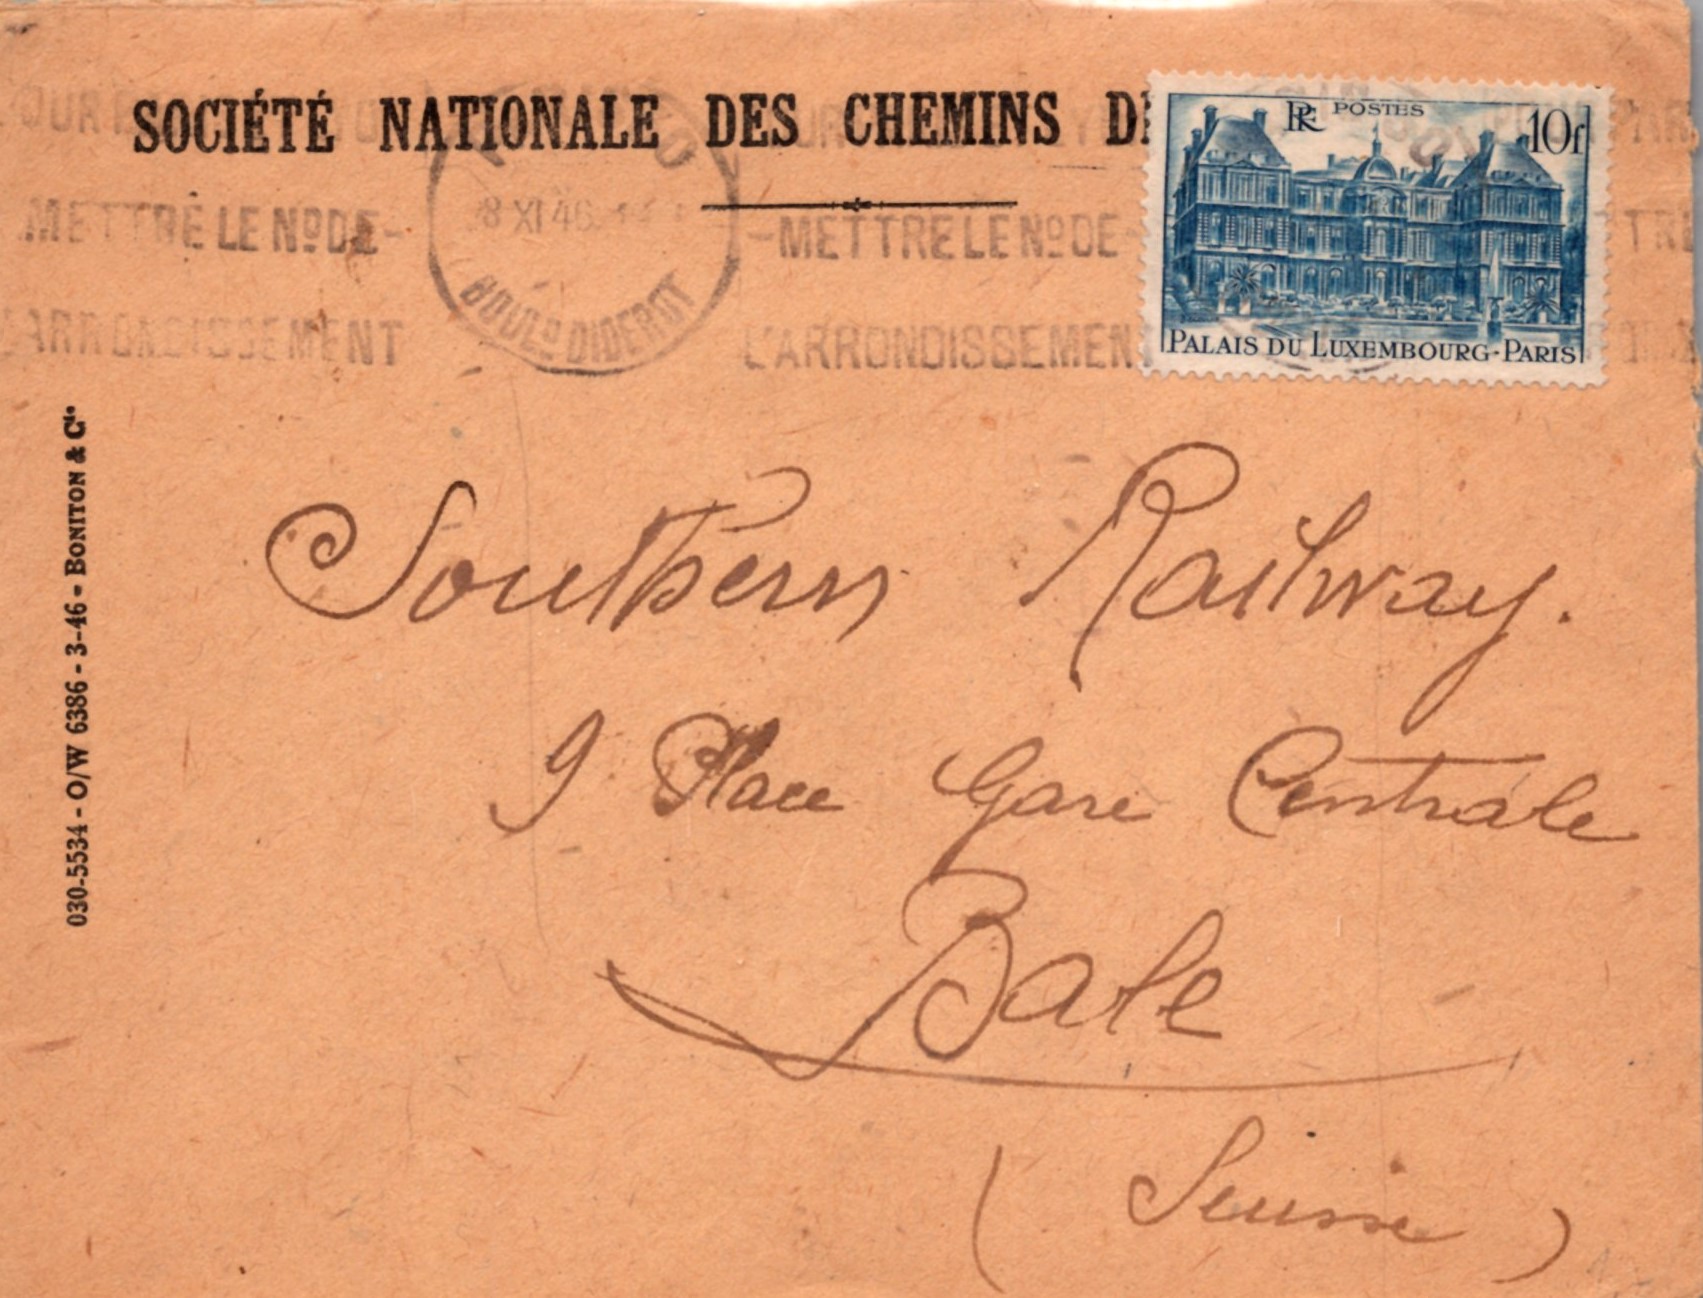 SOCIÉTÉ NATIONALE DES CHEMINS
RF POSTES 10f
PALAIS DU LUXEMBOURG-PARIS
8 XI 46
BOULD DIDEROT
METTRE LE No DE -
L'ARRONDISSEMENT
- METTRE LE No DE -
L'ARRONDISSEMENT
030-5534 - O/W 6386 - 3-46 - BONITON & Cie
Southern Railway.
9 Place Gare Centrale
Bale
(Suisse)